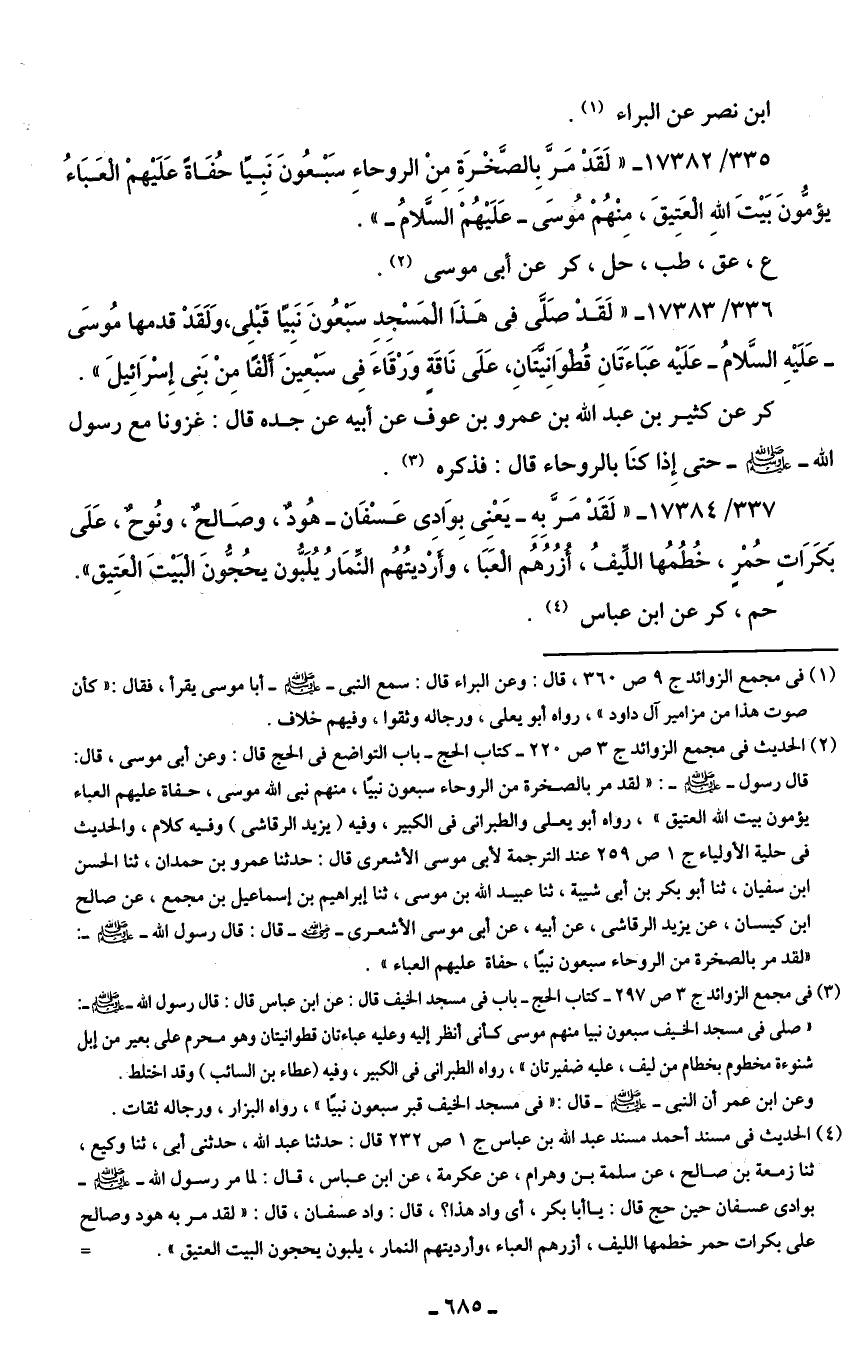 ابن نصر عن البراء (١) .
٣٣٥/ ١٧٣٨٢ـ « لَقَدْ مَرَّ بِالصَّخْرَةِ مِنْ الروحاءِ سَبْعُونَ نَبِيًّا حُفَاةً عَلَيْهِمْ الْعَبَاءُ
يؤمُّونَ بَيْتَ اللهِ الْعَتِيقَ ، مِنْهُمْ مُوسَى ـ عَلَيْهِمْ السَّلَامُ ـ » .
ع ، عق ، طب ، حل ، كر عن أبى موسى (٢) .
٣٣٦/ ١٧٣٨٣ـ « لَقَدْ صَلَّى فى هَذَا الْمَسْجِدِ سَبْعُونَ نَبِيًا قَبْلِى،وَلَقَدْ قدمها مُوسَى
ـ عَلَيْهِ السَّلَامُ ـ عَلَيْه عَبَاءَتَانِ قُطْوَانِيَّتَانِ، عَلَى نَاقَةٍ وَرْقَاءَ فى سَبْعِينَ أَلْفًا مِنْ بَنِى إِسْرَائِيلَ » .
كر عن كثير بن عبد الله بن عمرو بن عوف عن أبيه عن جده قال : غزونا مع رسول
الله ـ ﷺ ـ حتى إذا كنا بالروحاء قال : فذكره (٣) .
٣٣٧/ ١٧٣٨٤ـ « لَقَدْ مَرَّ بِهِ ـ يَعْنِى بِوَادِى عَسْفَان ـ هُودٌ ، وصَالحٌ ، ونُوحٌ ، عَلَى
بَكَرَاتٍ حُمْرٍ ، خُطُمُها اللِّيفُ ، أُزُرُهُم العَبَا ، وأَرْديتُهُم النِّمَارُ يُلَبُّون يحجُّونَ الْبَيْتَ الْعَتِيق».
حم ، كر عن ابن عباس (٤) .
(١) فى مجمع الزوائد ج ٩ ص ٣٦٠ ، قال : وعن البراء قال : سمع النبى ـ ﷺ ـ أبا موسى يقرأ ، فقال :« كأن
صوت هذا من مزامير آل داود » ، رواه أبو يعلى ، ورجاله وثقوا ، وفيهم خلاف .
(٢) الحديث فى مجمع الزوائد ج ٣ ص ٢٢٠ ـ كتاب الحج ـ باب التواضع فى الحج قال : وعن أبى موسى ، قال:
قال رسول ـ ﷺ ـ : « لقد مر بالصخرة من الروحاء سبعون نبيًا ، منهم نبى الله موسى ، حفاة عليهم العباء
يؤمون بيت الله العتيق » ، رواه أبو يعلى والطبرانى فى الكبير ، وفيه ( يزيد الرقاشى ) وفيه كلام ، والحديث
فى حلية الأولياء ج ١ ص ٢٥٩ عند الترجمة لأبى موسى الأشعرى قال : حدثنا عمرو بن حمدان ، ثنا الحسن
ابن سفيان ، ثنا أبو بكر بن أبى شيبة ، ثنا عبيد الله بن موسى ، ثنا إبراهيم بن إسماعيل بن مجمع ، عن صالح
ابن كيسان ، عن يزيد الرقاشى ، عن أبيه ، عن أبى موسى الأشعرى ـ رضي الله عنه ـ قال : قال رسول الله ـ ﷺ ـ:
«لقد مر بالصخرة من الروحاء سبعون نبيًا ، حفاة عليهم العباء » .
(٣) فى مجمع الزوائد ج ٣ ص ٢٩٧ ـ كتاب الحج ـ باب فى مسجد الخيف قال : عن ابن عباس قال : قال رسول الله ـ ﷺ ـ:
« صلى فى مسجد الخيف سبعون نبيا منهم موسى كأنى أنظر إليه وعليه عباءتان قطوانيتان وهو محرم على بعير من إبل
شنوءة مخطوم بخطام من ليف ، عليه ضفيرتان » ، رواه الطبرانى فى الكبير ، وفيه (عطاء بن السائب ) وقد اختلط .
وعن ابن عمر أن النبى ـ ﷺ ـ قال :« فى مسجد الخيف قبر سبعون نبيًا » ، رواه البزار ، ورجاله ثقات .
(٤) الحديث فى مسند أحمد مسند عبد الله بن عباس ج ١ ص ٢٣٢ قال : حدثنا عبد الله ، حدثنى أبى ، ثنا وكيع ،
ثنا زمعة بن صالح ، عن سلمة بن وهرام ، عن عكرمة ، عن ابن عباس ، قال : لما مر رسول الله ـ ﷺ ـ
بوادى عسفان حين حج قال : ياأبا بكر ، أى واد هذا؟ ، قال : واد عسفان ، قال : « لقد مر به هود وصالح
على بكرات حمر خطمها الليف ، أزرهم العباء ،وأرديتهم النمار ، يلبون يحجون البيت العتيق » . =
ـ ٦٨٥ ـ